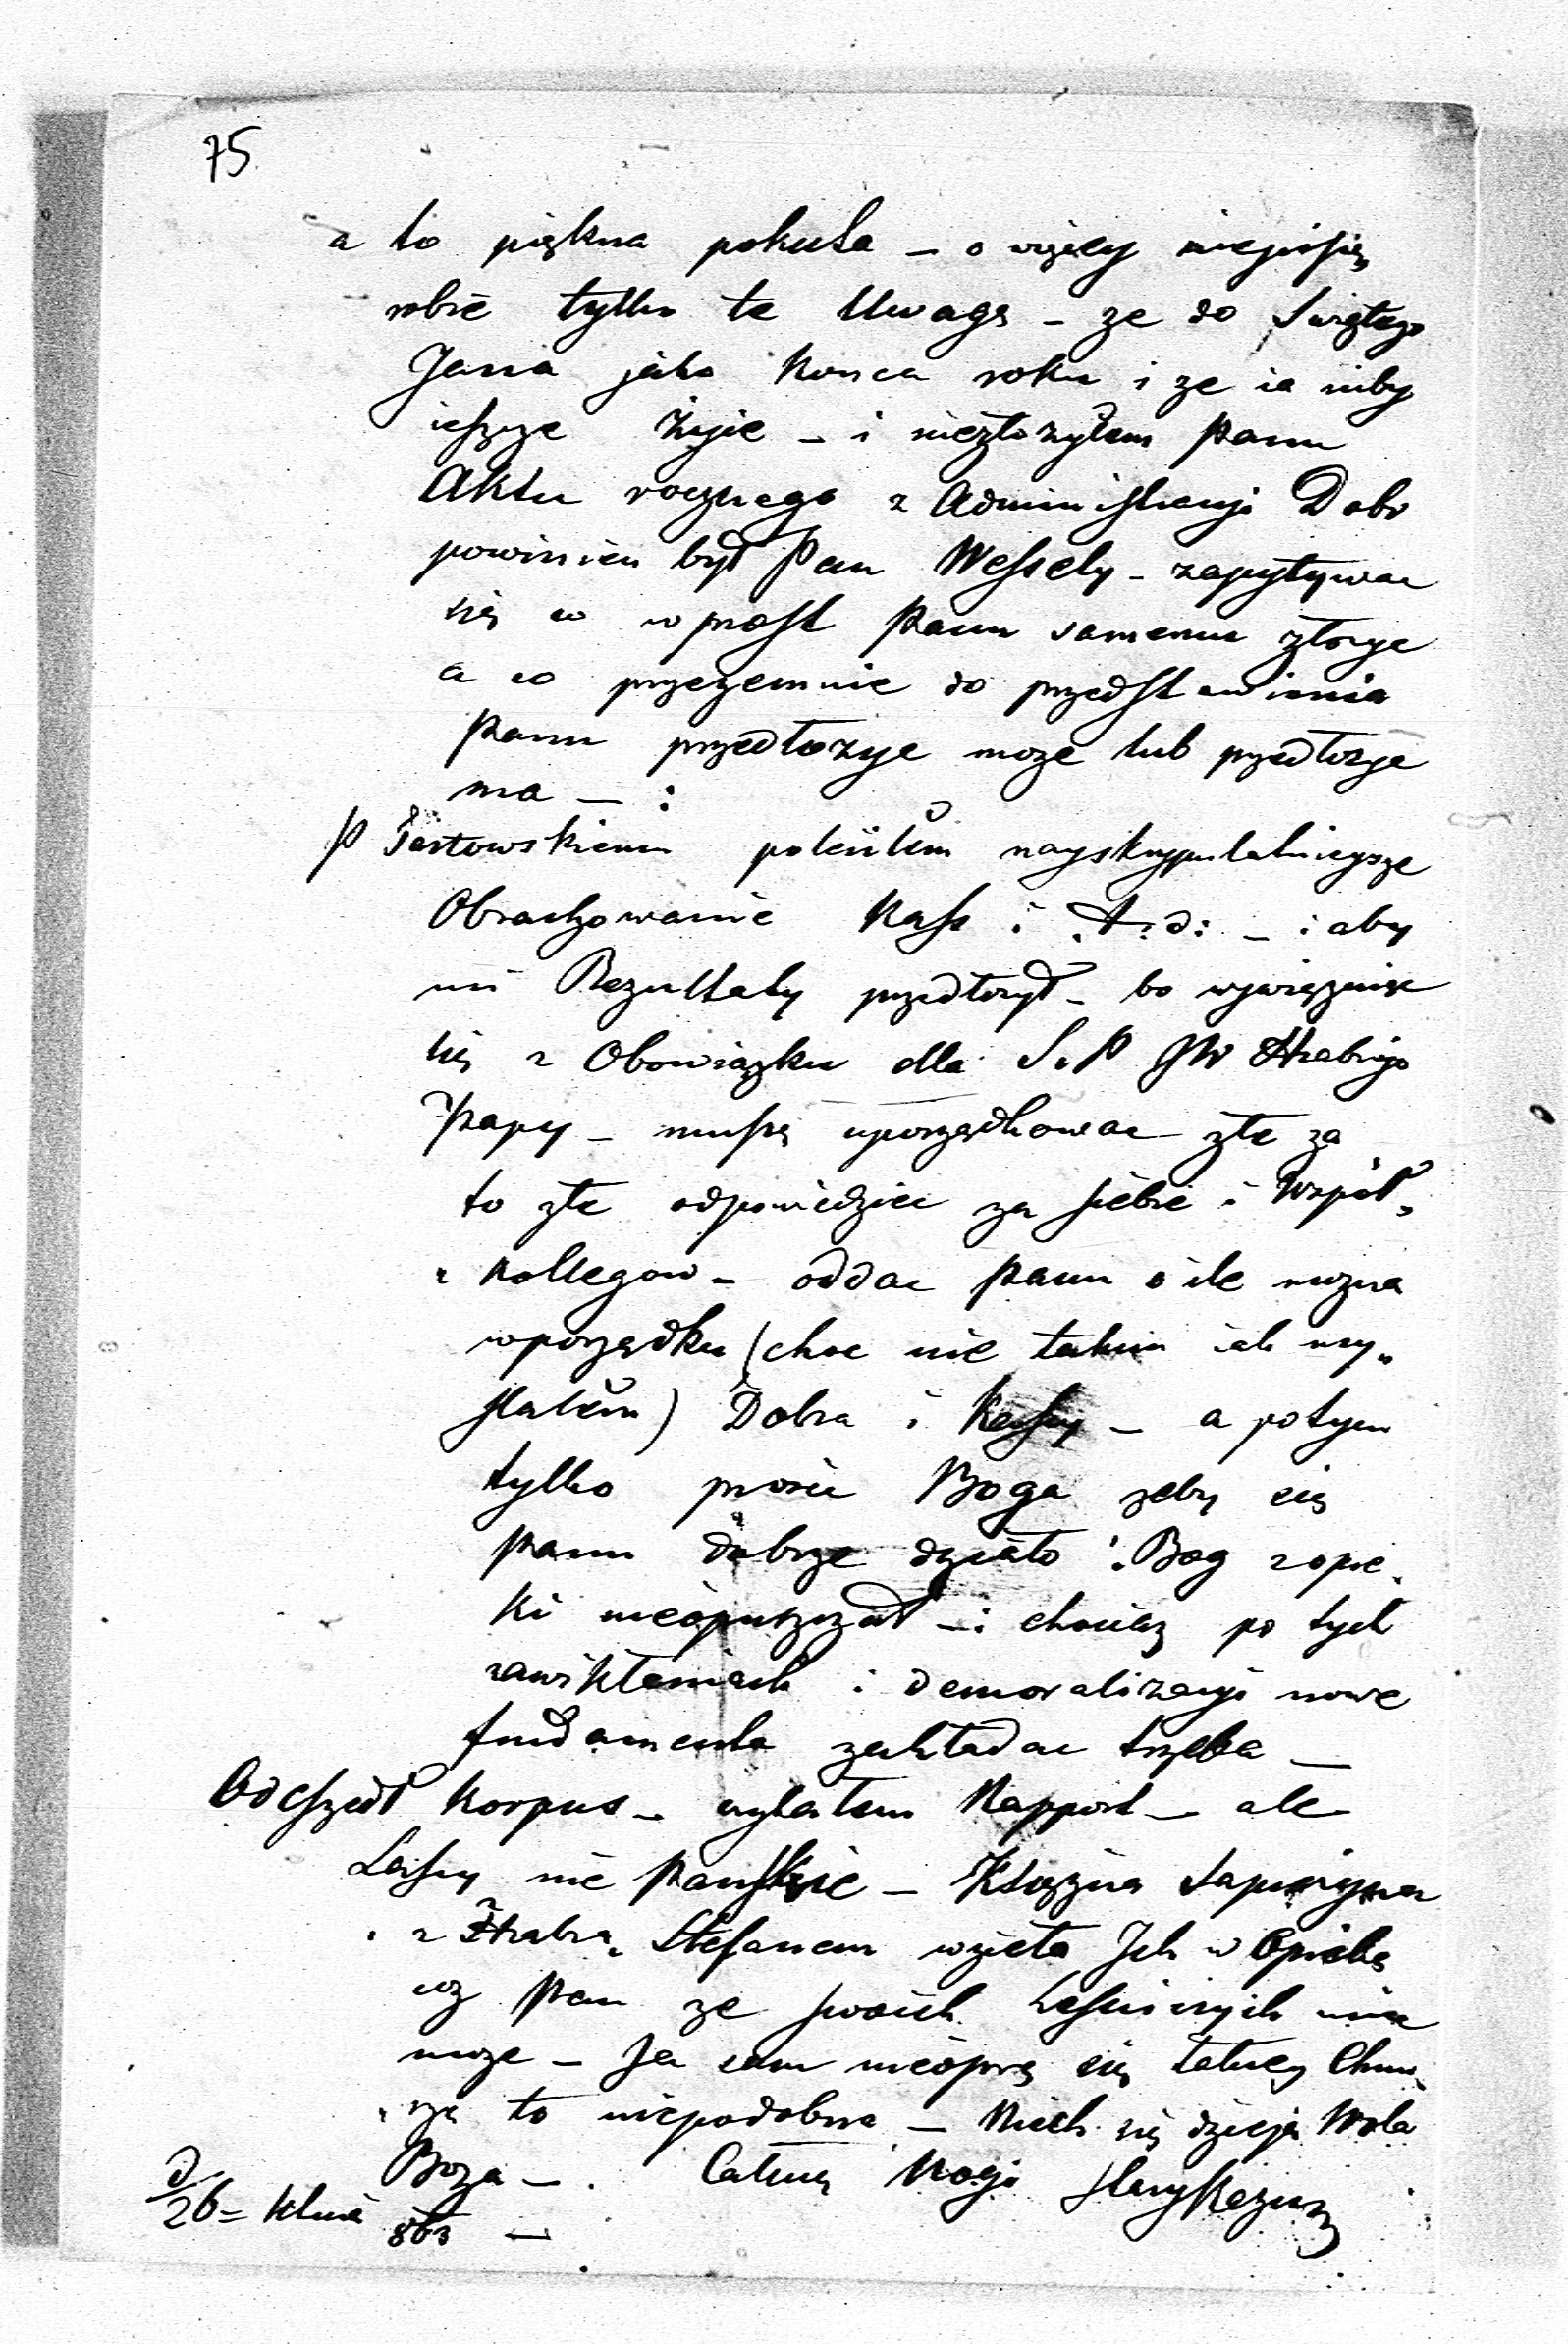 75
a to piękna pokuta – o więcey niepiszę
robie tylko te Uwagę – ze do Swiętego
Jana jako Konca roku i ze ia niby
ieszcze żyie – i niezłożyłem Panu
Aktu rocznego z Administracyi Dobr
powinien był Pan Wessely – zapytywac
się co wprost Panu samemu złozye
a co przezemnie do przedstawienia
Panu przedłozye moze lub przedłozye
ma – :
P Tertowskiemu polecilem nayskrypulatnieysze
Obrachowanie Kass i .t.d: – i aby
mi Rezultaty przedłozył – bo wywięznie
się z Obowiązku dla S.P JW Hrabiego
Papy – muszę uporządkowac złe za
to złe odpowiedziec za siebie i Współ„
„Kollegow – oddac Panu o ile mozna
wporządku (choc nie takim iak my„
slalem) Dobra i Kassy – a potym
tylko prosic Boga zeby się
Panu dobrze działo i Bog zopie„
ki nieopuszczał – i chociaz po tych
zawikłaniach i demoralizacyi nowe
fundamenta zakładac trzeba –
Odeszedł Korpus – czytałem Rapport – ale
Lasy nie Panskie – Księzna Sapiezyna
z Hrabią Stefanem wzieła Ich w Opiekę
coz Pan ze swoich Lesniczych
moze – Ja sam nieoprę się
to niepodobna – Niech się dzieja Wola
Boza – . Całuię Nogi
d/26 = 863 –